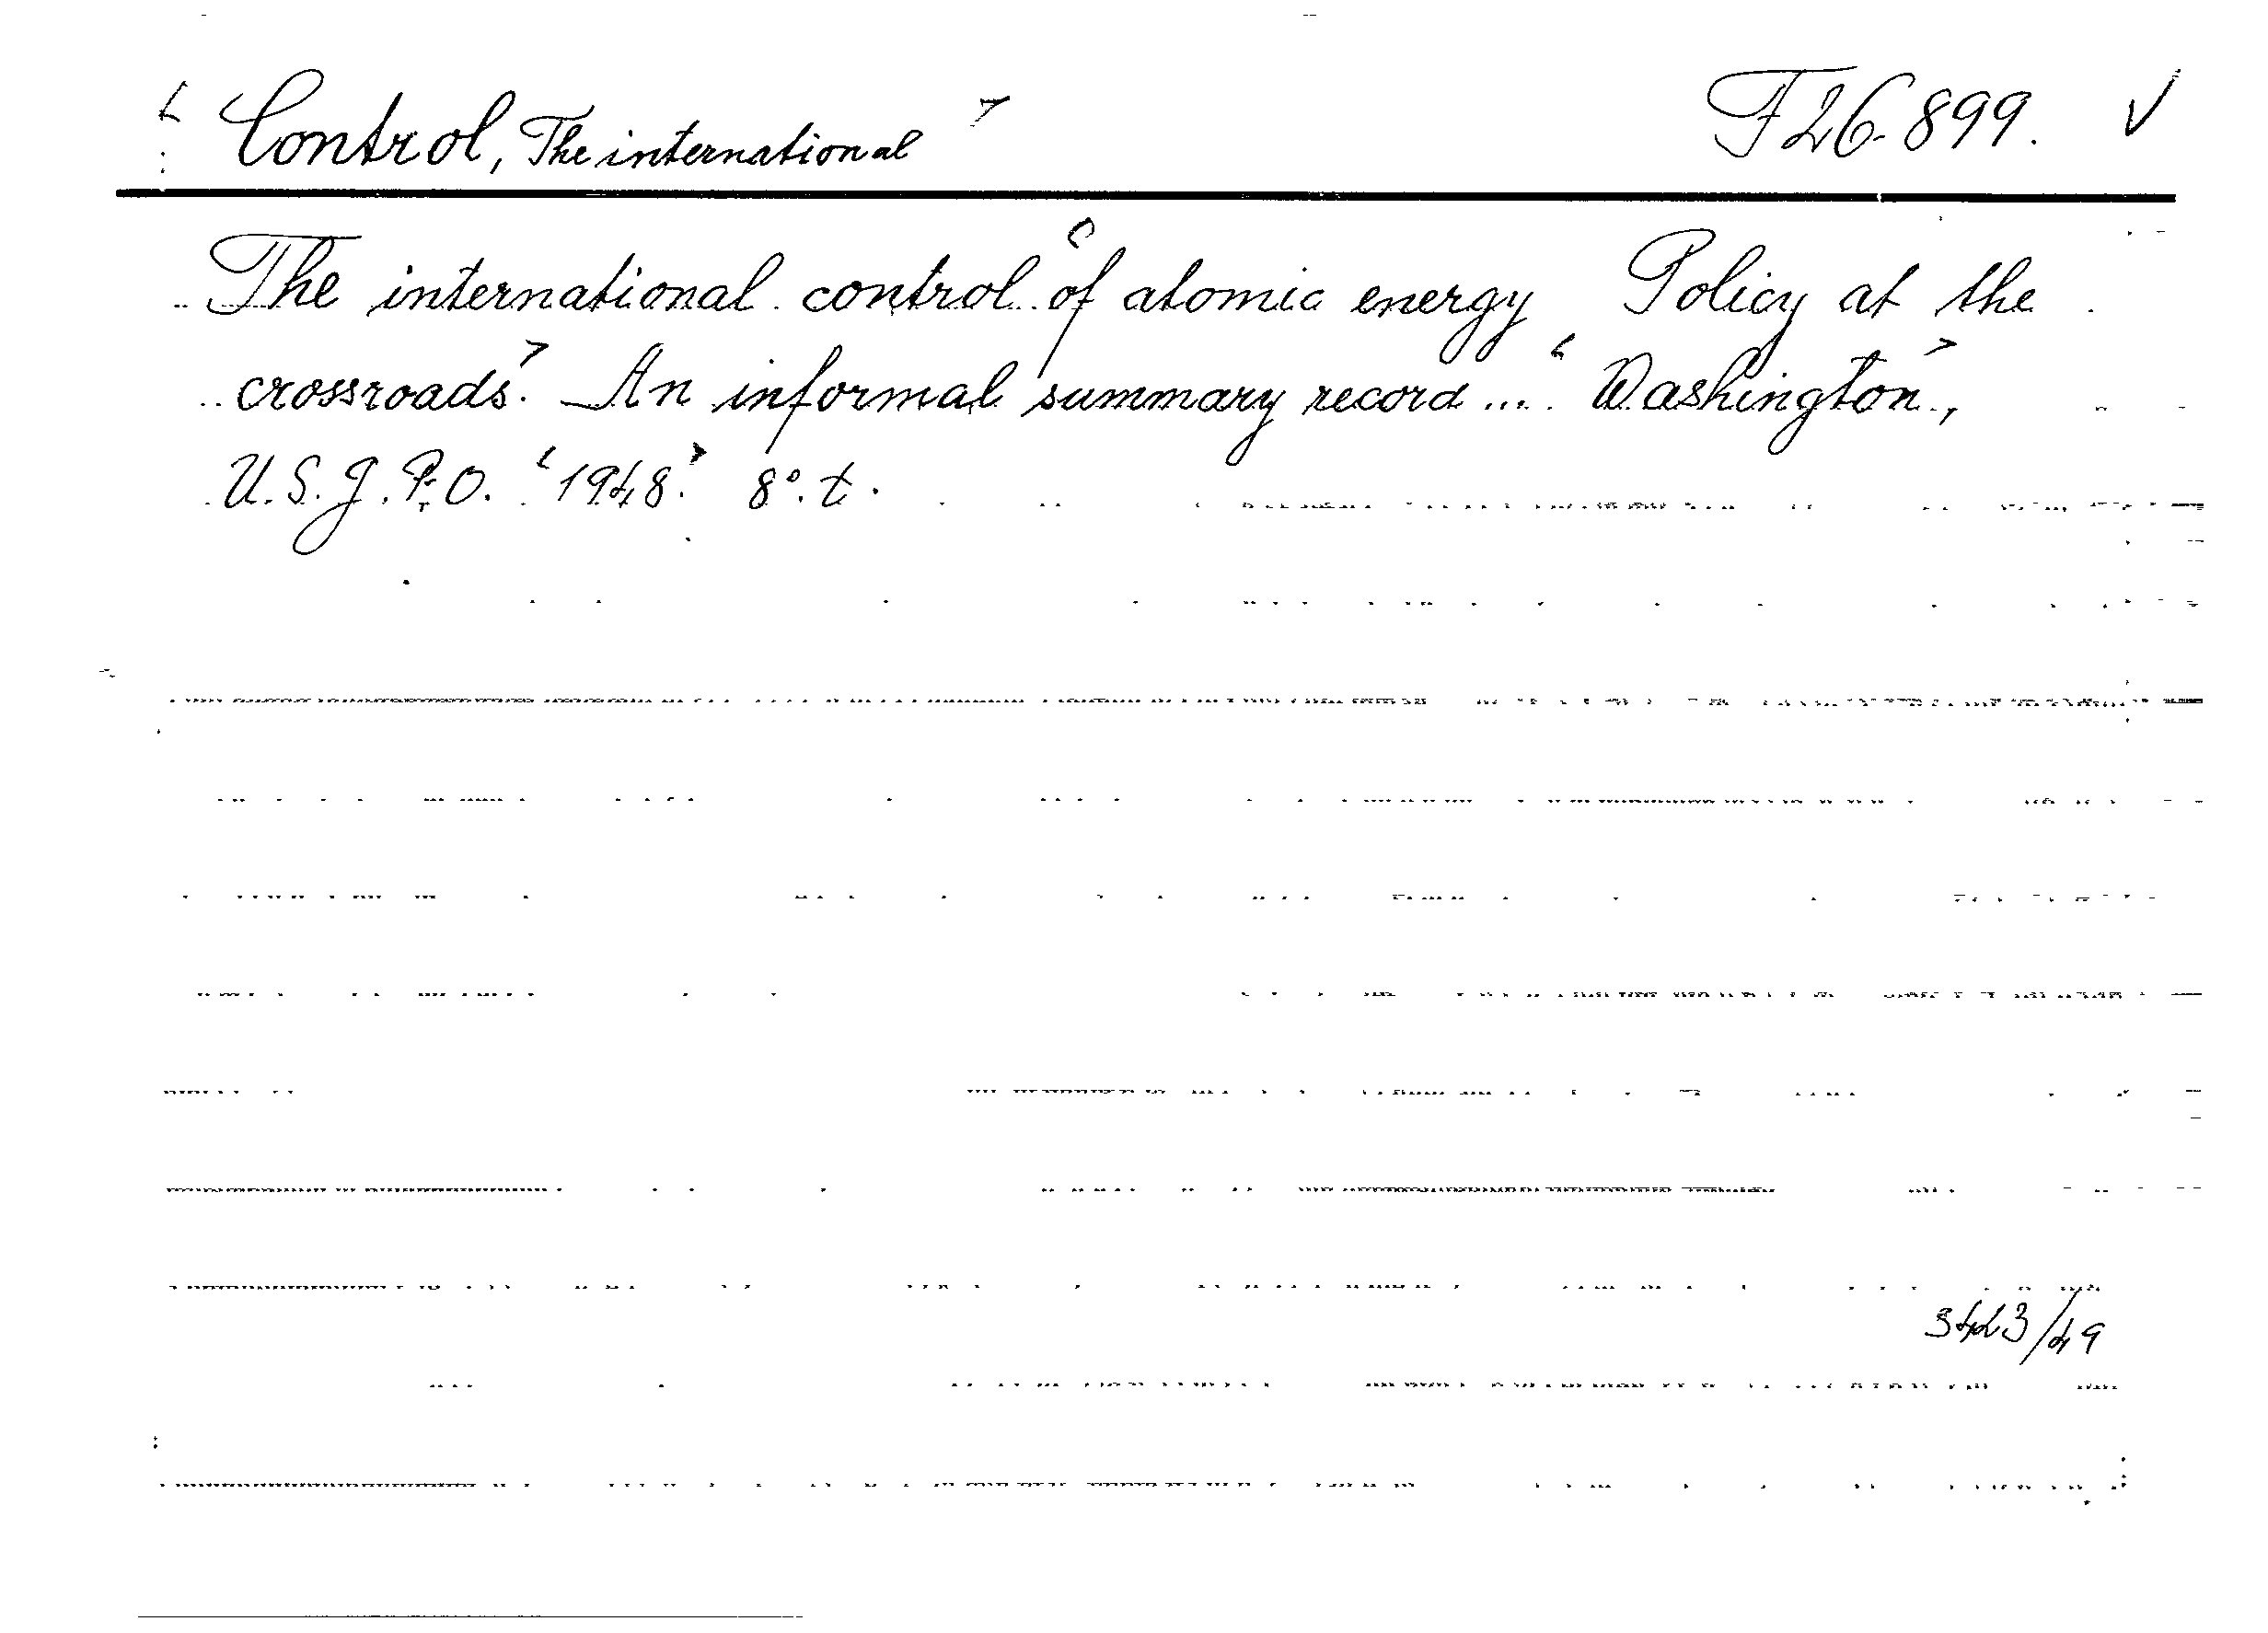 Control, The international F26.899. ✓
The international control of atomic energy Policy at the
crossroads. An informal summary record .... Washington,
U.S.G.P.O. 1948. 8°.t.
3423/49